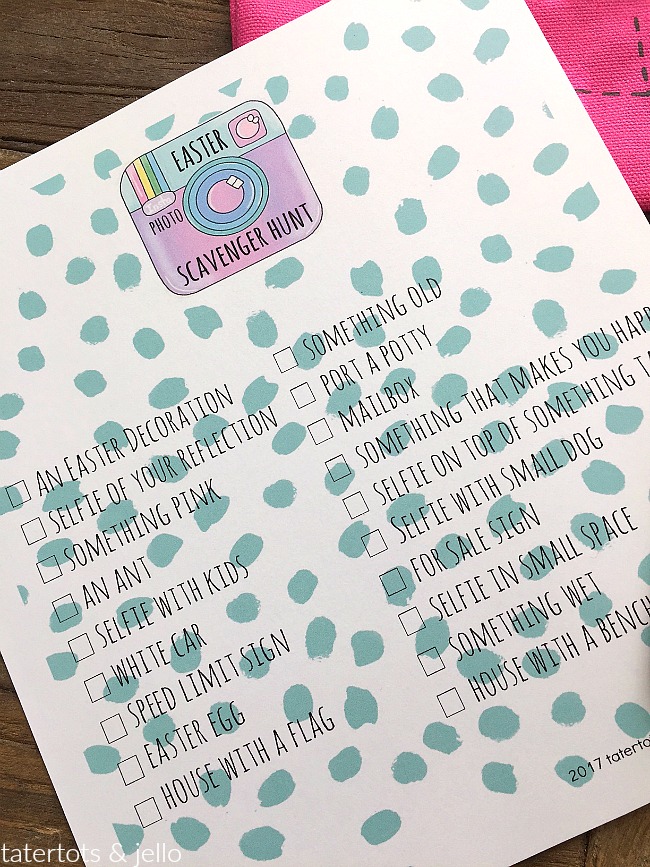 EASTER
PHOTO
SCAVENGER HUNT
AN EASTER DECORATION
SELFIE OF YOUR REFLECTION
SOMETHING PINK
AN ANT
SELFIE WITH KIDS
WHITE CAR
SPEED LIMIT SIGN
EASTER EGG
HOUSE WITH A FLAG
SOMETHING OLD
PORT A POTTY
MAILBOX
SOMETHING THAT MAKES YOU
SELFIE ON TOP OF SOMETHING
SELFIE WITH SMALL DOG
FOR SALE SIGN
SELFIE IN SMALL SPACE
SOMETHING WET
HOUSE WITH A BENCH
2017
tatertots & jello